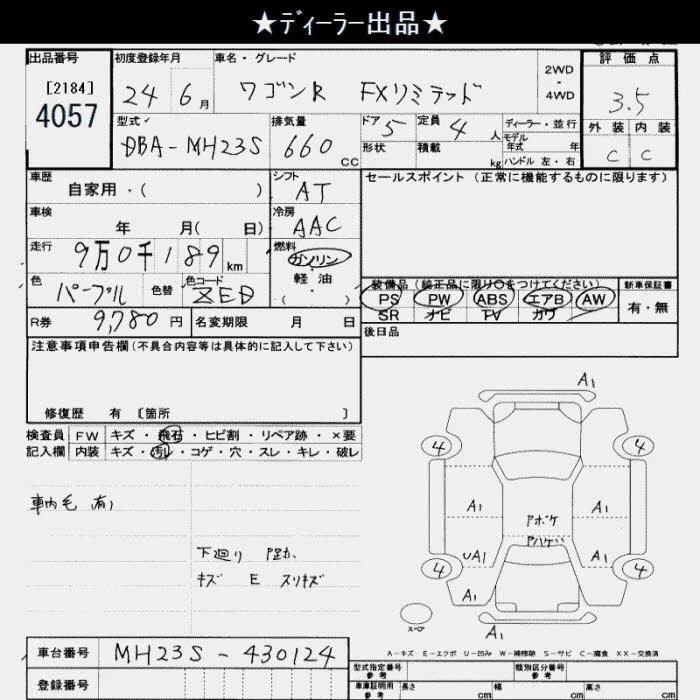 ★ディーラー出品★
出品番号 初度登録年月 車名・グレード 評価点
[2184] 24年 6月 ワゴンR FXリミテッド 2WD・4WD 3.5
4057 型式 排気量 ドア 定員 ディーラー・並行 外装 内装
DBA-MH23S 660cc 5 4人 モデル年式 年 C C
形状 積載 kg ハンドル 左・右
車歴 自家用・( ) シフト AT セールスポイント (正常に機能するものに限ります)
車検 年 月( 日) 冷房 AAC
走行 9万0千189km 燃料 ガソリン
軽油
( )
色 パープル 色替 色コード ZED 装備品 (純正品に限り○をつけてください) 新車保証書
PS PW ABS エアB AW 有・無
SR ナビ TV カワ
R券 9,780円 名変期限 月 日 後日品
注意事項申告欄(不具合内容等は具体的に記入して下さい)
修復歴 有 [箇所 ]
検査員 FW キズ・飛石・ヒビ割・リペア跡・×要
記入欄 内装 キズ・汚れ・コゲ・穴・スレ・キレ・破レ
車内毛 有り
下廻り
キズ E スリキズ
A1
4 4
A1 A1
Pボケ
Pハゲ
UA1 A1
4 4
A1
スペア A1
A-キズ E-エクボ U-凹み W-補修跡 S-サビ C-腐食 XX-交換済
車台番号 MH23S-430124
登録番号
型式指定番号 参考 類別区分番号 参考
車庫証明用 参考 長さ cm 幅 cm 高さ cm